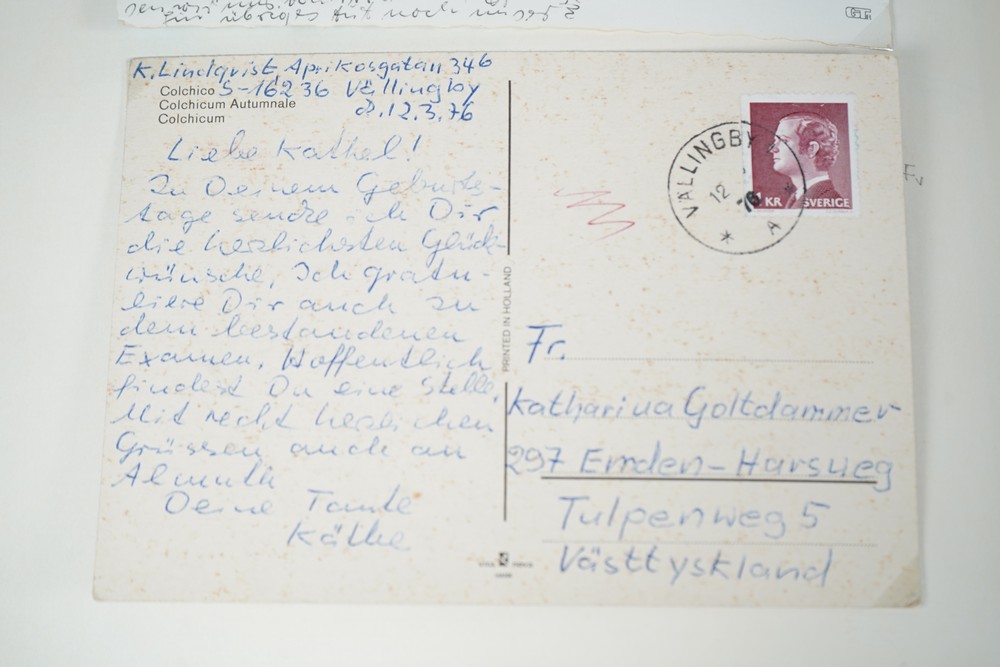 K. Lindqvist, Aprikosgatan 346
S-16236 Vällingby
d. 12.3.76
Colchico
Colchicum Autumnale
Colchicum
Liebe Kathel!
Zu Deinem Geburts-
tage sende ich Dir
die herzlichsten Glück-
wünsche, Ich gratu-
liere Dir auch zu
dem bestandenen
Examen. Hoffentlich
findest Du eine Stelle.
Mit recht herzlichen
Grüssen auch an
Almuth
Deine Tante
Käthe
PRINTED IN HOLLAND
VÄLLINGBY
12
76
A
1 KR SVERIGE
Fr.
Katharina Goltdammer
297 Emden-Harsweg
Tulpenweg 5
Västtyskland